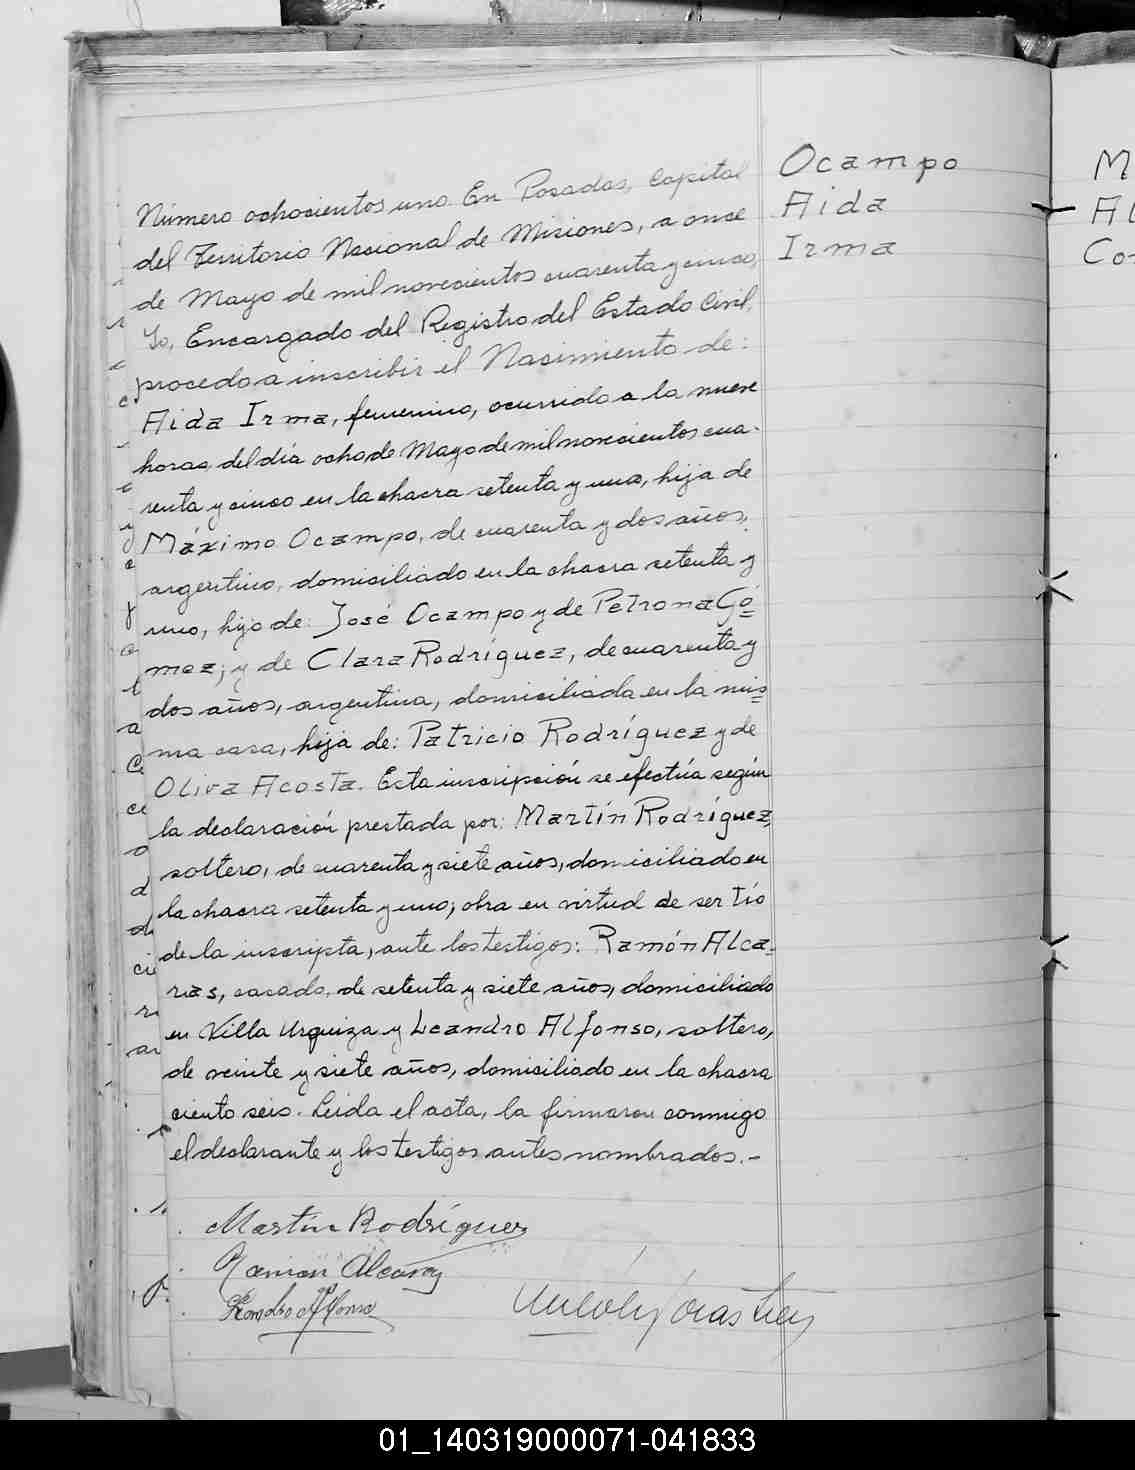 Número ochocientos uno. En Posadas, Capital
del Territorio Nacional de Misiones, a once
de Mayo de mil novecientos cuarenta y cinco,
Yo, Encargado del Registro del Estado Civil,
procedo a inscribir el Nacimiento de:
Aida Irma, femenino, ocurrido a la nueve
horas, del día ocho de Mayo de mil novecientos cua-
renta y cinco en la chacra setenta y uno, hija de
Máximo Ocampo, de cuarenta y dos años,
argentino, domiciliado en la chacra setenta y
uno, hijo de: José Ocampo y de Petrona Gó=
mez; y de Clara Rodríguez, de cuarenta y
dos años, argentina, domiciliada en la mis=
ma casa, hija de: Patricio Rodríguez y de
Oliva Acosta. Esta inscripción se efectúa según
la declaración prestada por: Martín Rodríguez,
soltero, de cuarenta y siete años, domiciliado en
la chacra setenta y uno; obra en virtud de ser tío
de la inscripta, ante los testigos: Ramón Alca-
ras, casado, de setenta y siete años, domiciliado
en Villa Urquiza y Leandro Alfonso, soltero,
de veinte y siete años, domiciliado en la chacra
ciento seis. Leida el acta, la firmaron conmigo
el declarante y los testigos antes nombrados.-
Martín Rodríguez
Ramón Alcaraz
Leandro Alfonso
Ocampo
Aida
Irma
M
Al
Co
01_140319000071-041833